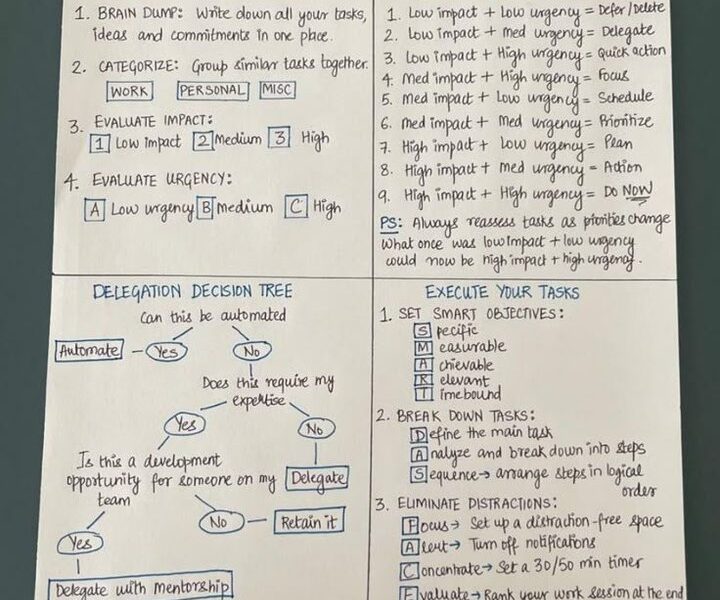 1. BRAIN DUMP: Write down all your tasks,
ideas and commitments in one place.
2. CATEGORIZE: Group similar tasks together.
WORK PERSONAL MISC
3. EVALUATE IMPACT:
1 Low impact 2 Medium 3 High
4. EVALUATE URGENCY:
A Low urgency B Medium C High
1. Low impact + Low urgency = Defer/Delete
2. Low impact + Med urgency = Delegate
3. Low impact + High urgency = Quick action
4. Med impact + High urgency = Focus
5. Med impact + Low urgency = Schedule
6. Med impact + Med urgency = Prioritize
7. High impact + Low urgency = Plan
8. High impact + Med urgency = Action
9. High impact + High urgency = Do NOW
PS: Always reassess tasks as priorities change
What once was low impact + low urgency
could now be high impact + high urgency.
DELEGATION DECISION TREE
Can this be automated
Automate – Yes No
Does this require my
expertise
Yes No
Is this a development
opportunity for someone on my
team
Delegate
No – Retain it
Yes
Delegate with mentorship
EXECUTE YOUR TASKS
1. SET SMART OBJECTIVES:
Specific
Measurable
Achievable
Relevant
Timebound
2. BREAK DOWN TASKS:
Define the main task
Analyze and break down into steps
Sequence → arrange steps in logical
order
3. ELIMINATE DISTRACTIONS:
Focus → Set up a distraction-free space
Alert → Turn off notifications
Concentrate → Set a 30/50 min timer
Evaluate → Rank your work session at the end